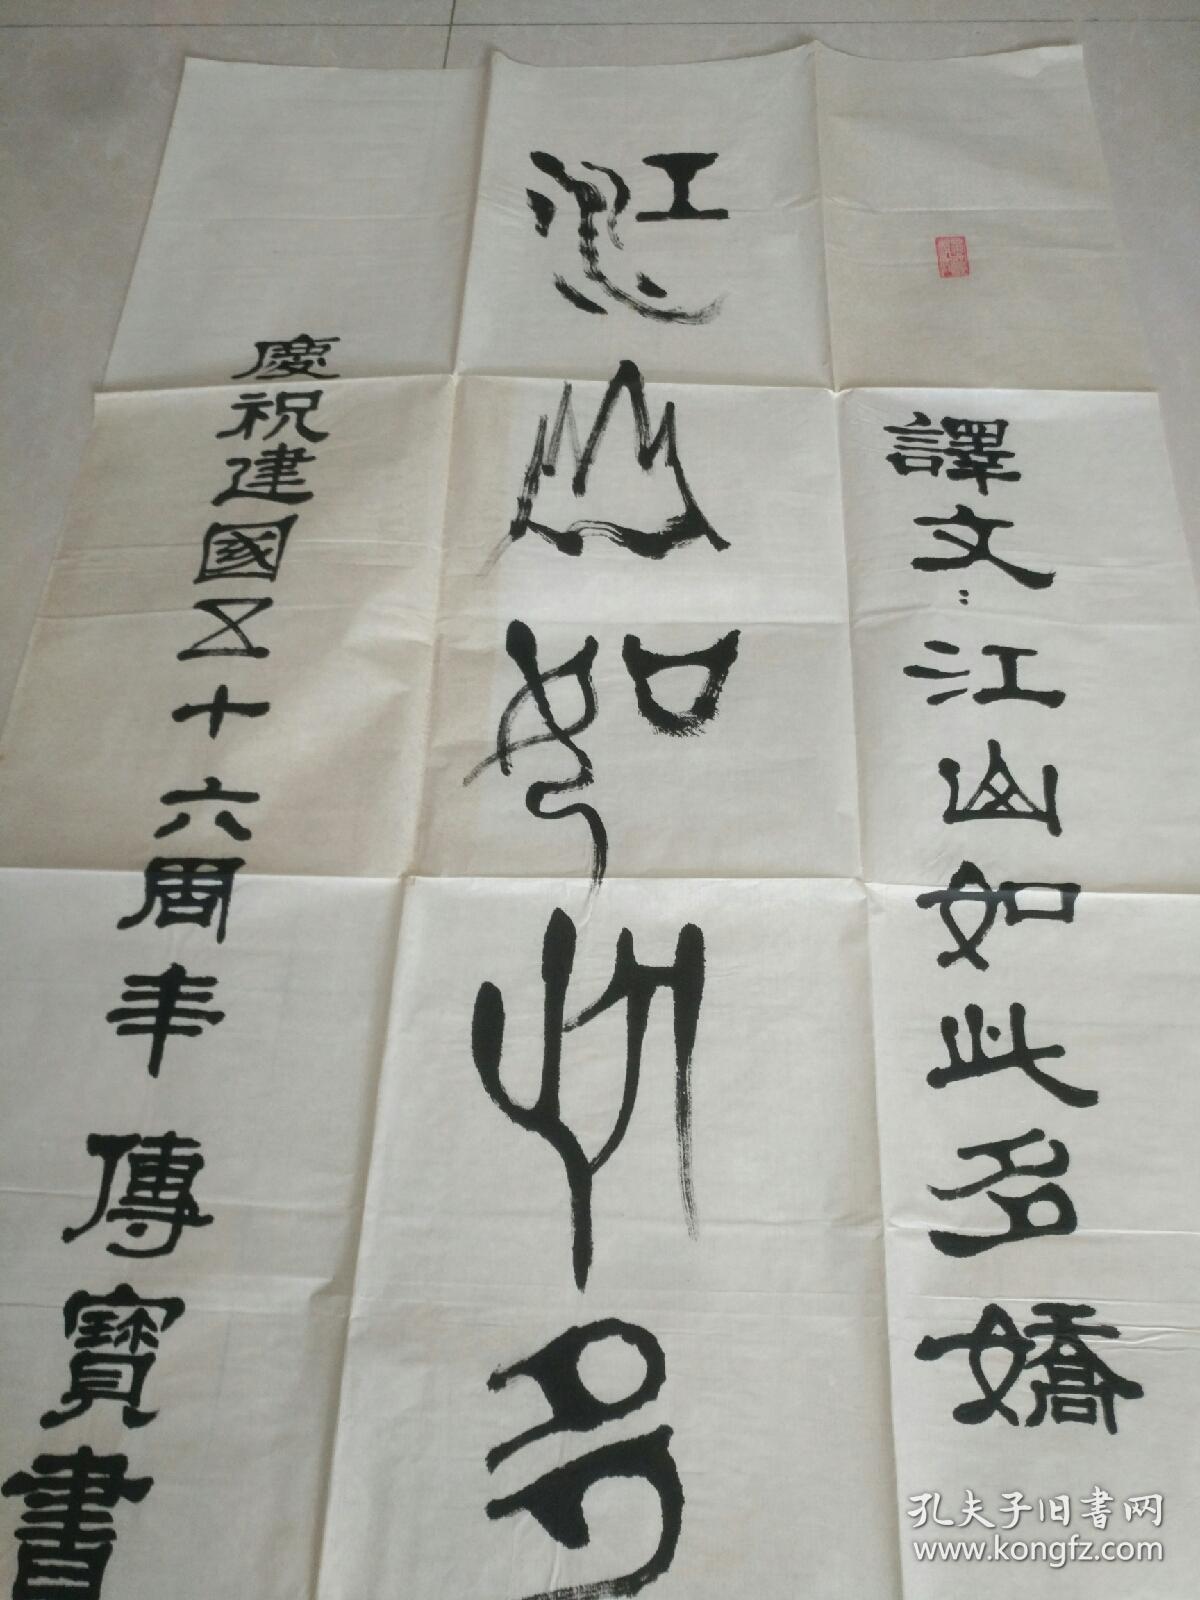 譯文：江山如此多嬌
江山如此多
慶祝建國五十六周年 傳寶書
孔夫子旧书网
www.kongfz.com